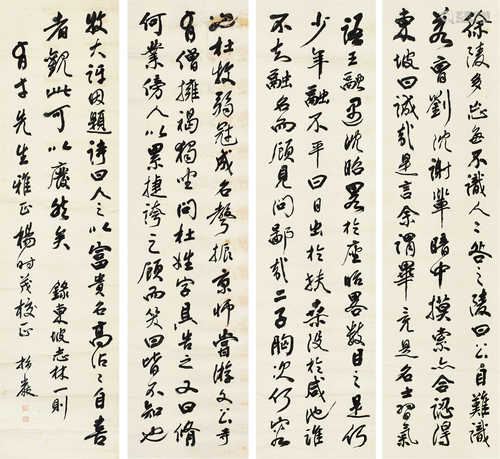 徐陵多忘不識人人咎之陵曰公自難識
若曹劉沈謝輩暗中摸索亦合認得
東坡曰誠哉是言余謂畢竟是名士習氣
語王融遇沈昭略於座昭略數目之是何
少年融不平曰日出於扶桑沒於咸池誰
不知融名而顧見問鄙哉二子胸次何容
地杜牧弱冠成名聲振京師嘗遊文公寺
有僧擁褐獨坐問杜姓字具告之又曰脩
何業傍人以累捷誇之顧而笑曰皆不知也
牧大訝因題詩曰人之以富貴名高沾沾自喜
者觀此可以廢然矣 錄東坡志林一則
先生雅正楊時茂校正